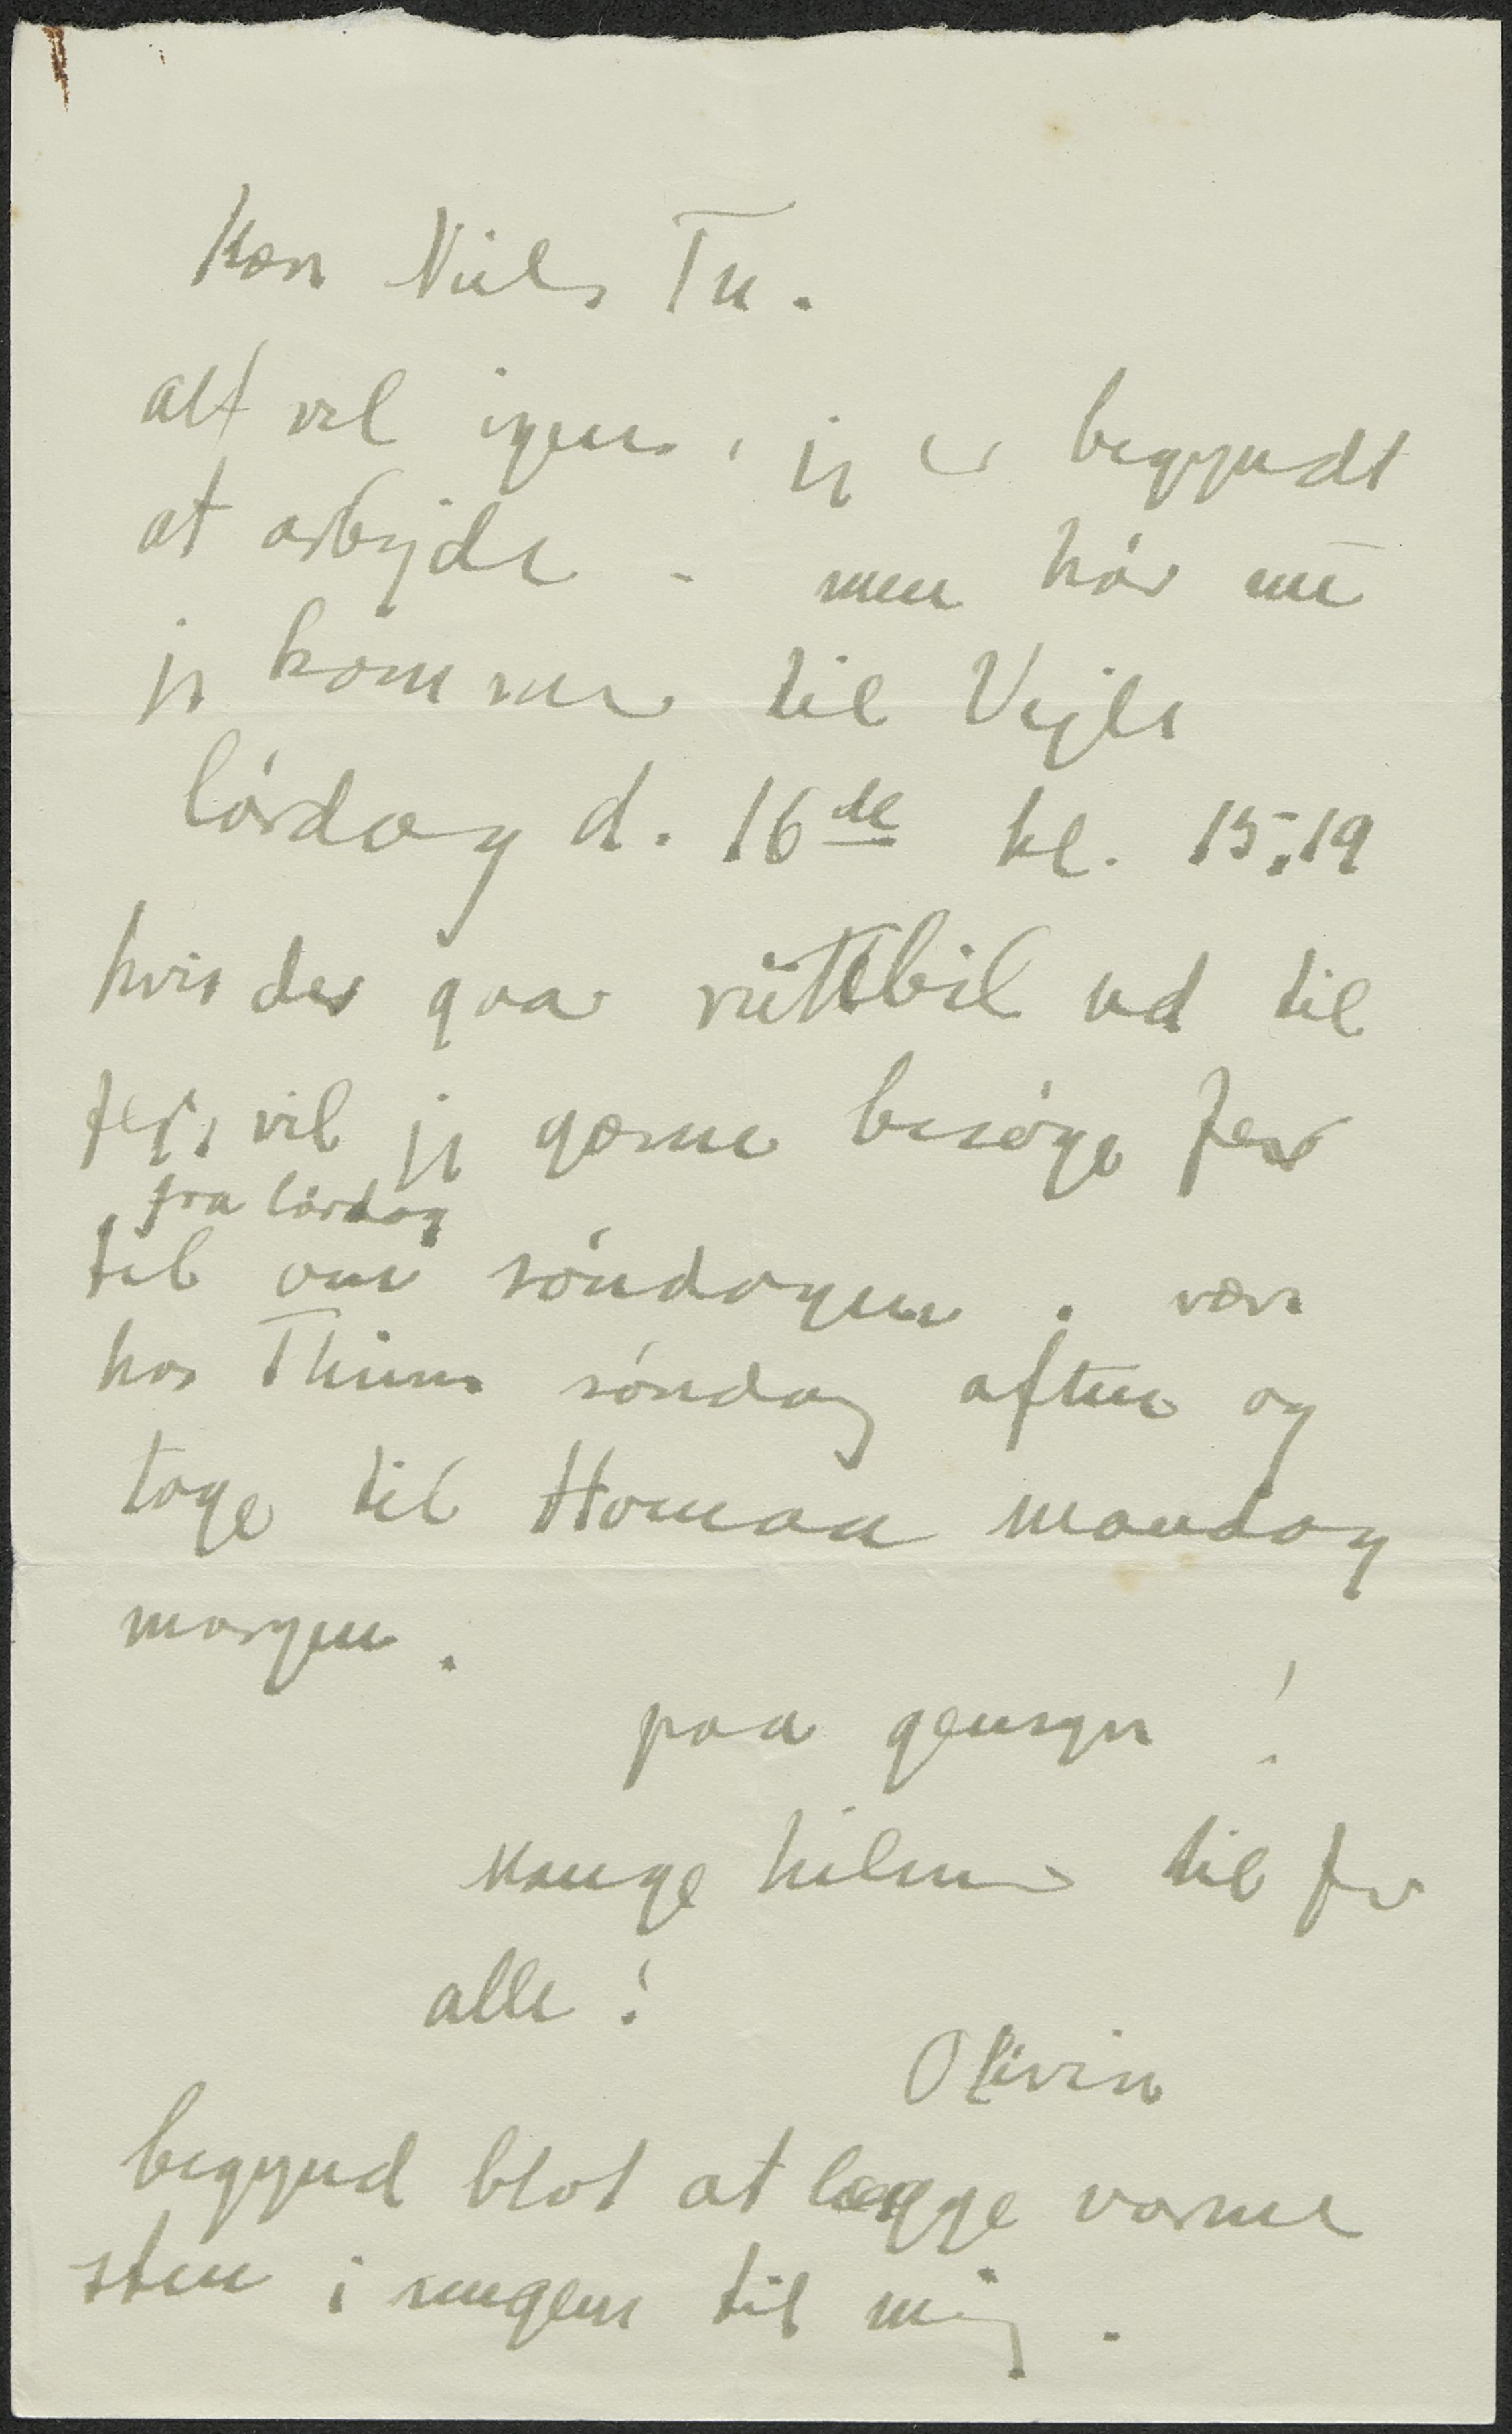 Kær Niels Th.
alt vel igen, jeg er begyndt
at arbejde - men hør nu
jeg kommer til Vejle
lørdag d. 16de kl. 15;19
hvis der gaar rutebil ud til
Jer, vil jeg gerne besøge Jer
fra lørdag
til om søndagen. være
hos Thim søndag aften og
tage til Homaa mandag
morgen.
paa gensyn!
mange hilsner til Jer
alle!
Olivia
begynd blot at lægge varme
sten i sengen til mig.